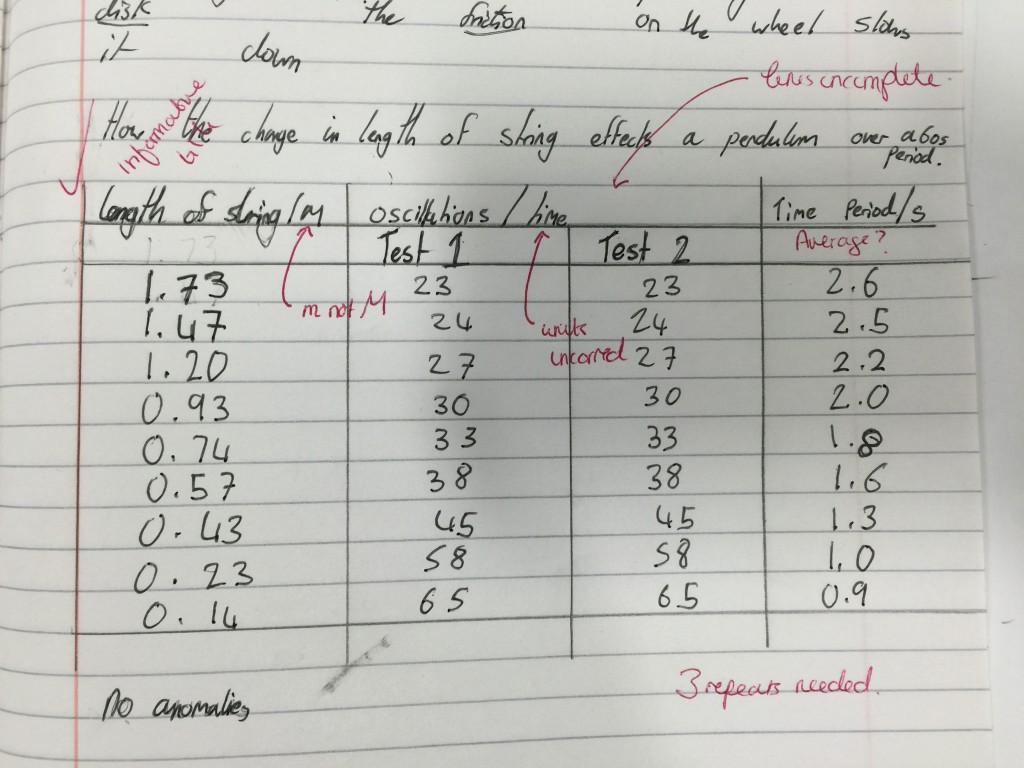 disk the friction on the wheel slows
it down
lines incomplete.
Informative title
How the change in length of string effects a pendulum over a 60s period.
length of string/M oscillations / time Time Period/s
Test 1 Test 2 Average?
1.73 23 23 2.6
m not M
1.47 24 24 2.5
units uncorred
1.20 27 27 2.2
0.93 30 30 2.0
0.74 33 33 1.8
0.57 38 38 1.6
0.43 45 45 1.3
0.23 58 58 1.0
0.14 65 65 0.9
3 repeats needed.
No anomalies